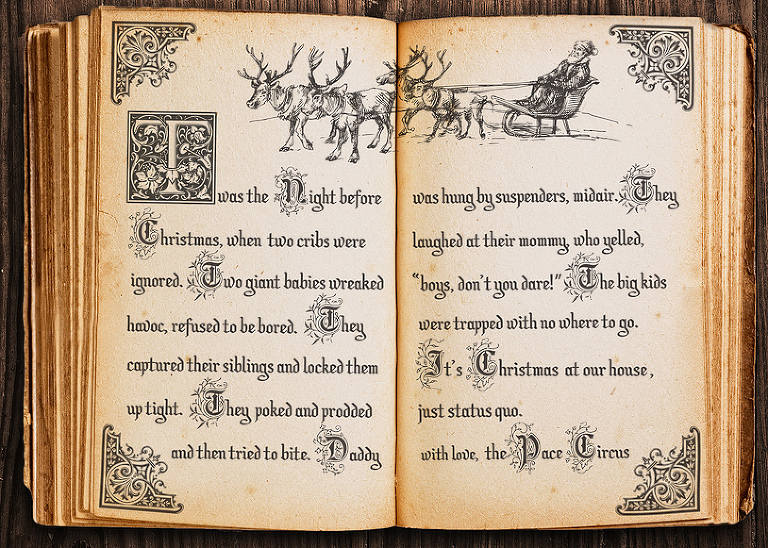 T was the Night before
Christmas, when two cribs were
ignored. Two giant babies wreaked
havoc, refused to be bored. They
captured their siblings and locked them
up tight. They poked and prodded
and then tried to bite. Daddy
was hung by suspenders, midair. They
laughed at their mommy, who yelled,
“boys, don't you dare!” The big kids
were trapped with no where to go.
It's Christmas at our house,
just status quo.
with love, the Pace Circus